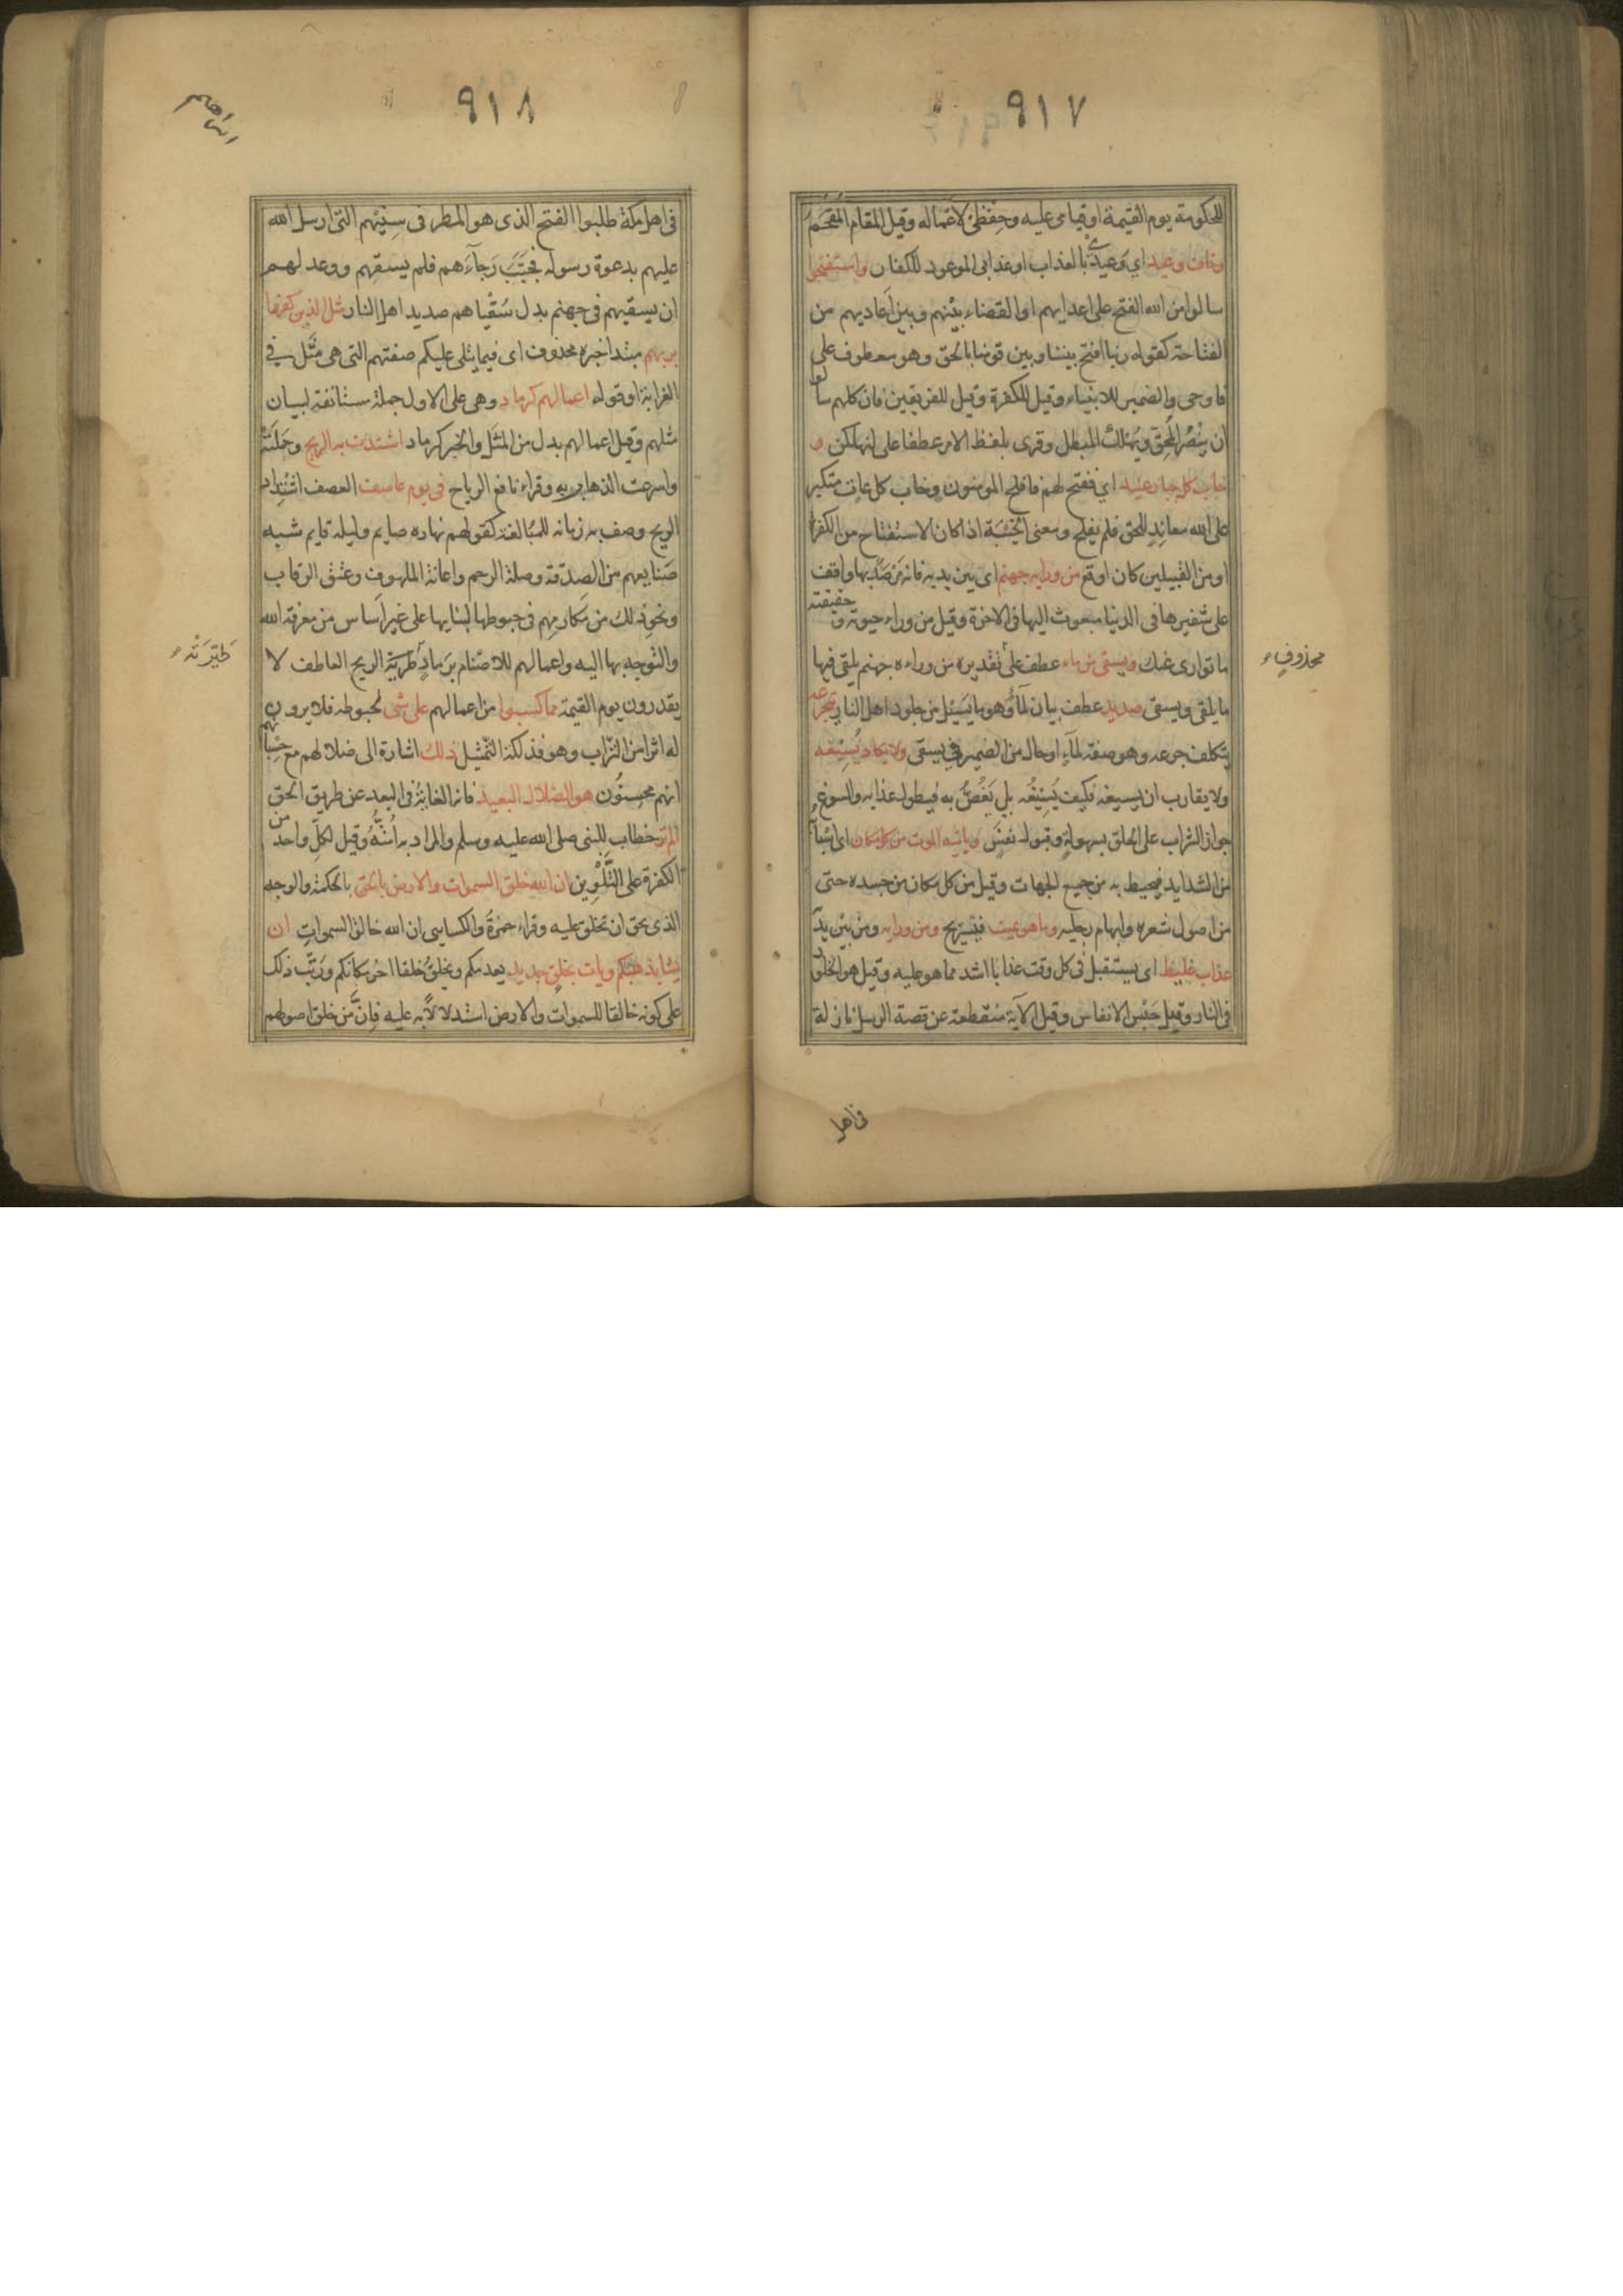 ٩١٧
للحكومة يوم القيمة او قيامى عليه وحفظى لاعماله وقيل المقام المقحم
وخاف وعيد اي وعيدى بالعذاب او عذابى الموعود للكفار واستفتحوا
سالوا من الله الفتح على اعدايهم او القضاء بينهم وبين اعاديهم من
الفتاحة كقوله ربنا افتح بيننا وبين قومنا بالحق وهو معطوف على
فاوحى والضمير للانبياء وقيل للكفرة وقيل للفريقين فان كلهم سالوا
ان ينصر المحق ويهلك المبطل وقرى بلفظ الامر عطفا على لنهلكن و
خاب كل جبار عنيد اي ففتح لهم فافلح المومنون وخاب كل عات متكبر
على الله معاند للحق فلم يفلح ومعنى الخيبة اذا كان الاستفتاح من الكفرة
او من القبيلين كان اوقع من ورايه جهنم اى بين يديه فانه مرصد بها واقف
على شفيرها فى الدنيا مبعوث اليها فى الاخرة وقيل من وراء حيوته وحقيقته
ما توارى عنك ويسقى من ماء عطف على تقديره من وراءه جهنم يلقى فيها
محذوف
ما يلقى ويسقى صديد عطف بيان لماء وهو ما يسيل من جلود اهل النار يتجرعه
يتكلف جرعه وهو صفة لماء او حال من الضمير في يسقى ولا يكاد يسيغه
ولا يقارب ان يسيغه فكيف يسيغه بل يغص به فيطول عذابه والسوغ
جواز الشراب على الحلق بسهولة وقبول نفس وياتيه الموت من كل مكان اى اسبابه
من الشدايد فيحيط به من جميع الجهات وقيل من كل مكان من جسده حتى
من اصول شعره وابهام رجليه وما هو بميت فيستريح ومن ورايه ومن بين يديه
عذاب غليظ اى يستقبل فى كل وقت عذابا اشد مما هو عليه وقيل هو الخلود
فى النار وقيل حبس الانفاس وقيل الآية منقطعة عن قصة الرسل نازلة
فى اهل
٩١٨
ابراهيم
فى اهل مكة طلبوا الفتح الذى هو المطر فى سنيهم التى ارسل الله
عليهم بدعوة رسوله فخيب رجاءهم فلم يسقهم ووعد لهم
ان يسقيهم فى جهنم بدل سقياهم صديد اهل النار مثل الذين كفروا
بربهم مبتدا خبره محذوف اى فيما يتلى عليكم صفتهم التى هى مثل في
الغرابة او قوله اعمالهم كرماد وهى على الاول جملة مستانفة لبيان
مثلهم وقيل اعمالهم بدل من المثل والخبر كرماد اشتدت به الريح وحملته
واسرعت الذهاب به وقراء نافع الرياح فى يوم عاصف العصف اشتداد
الريح وصف به زمانه للمبالغة كقولهم نهاره صايم وليله قايم شبه
صنايعهم من الصدقة وصلة الرحم واعانة الملهوف وعتق الرقاب
ونحو ذلك من مكارمهم فى حبوطها لبنايها على غير اساس من معرفة الله
والتوجه بها اليه واعمالهم للاصنام برماد طريته الريح العاطف لا
طيرته
يقدرون يوم القيمة مما كسبوا من اعمالهم على شى لحبوطه فلا يرون
له اثرا من الثواب وهو فذلكة التمثيل ذلك اشارة الى ضلالهم مع حسبانهم
انهم محسنون هو الضلال البعيد فانه الغاية فى البعد عن طريق الحق
الم تر خطاب للنبى صلى الله عليه وسلم والمراد به امته وقيل لكل واحد من
الكفرة على التلوين ان الله خلق السموات والارض بالحق بالحكمة والوجه
الذى يحق ان تخلق عليه وقراء حمزة والكسايى ان الله خالق السموات ان
يشا يذهبكم ويات بخلق جديد يعدمكم ويخلق خلقا اخر مكانكم ورتب ذلك
على كونه خالقا للسموات والارض استدلالا به عليه فان من خلق اصولهم